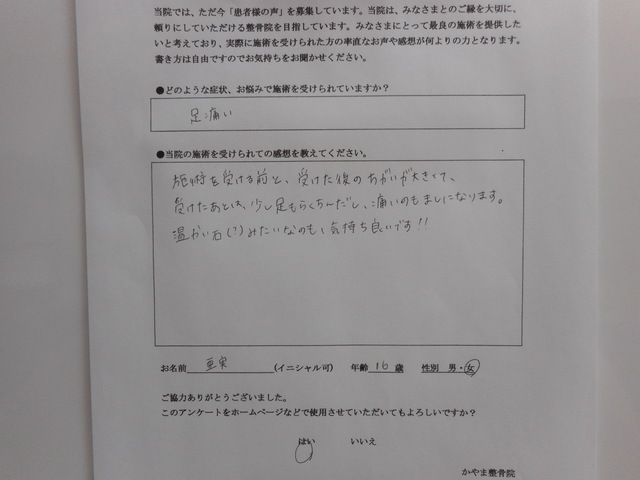 当院では、ただ今「患者様の声」を募集しています。当院は、みなさまとのご縁を大切に、
頼りにしていただける整骨院を目指しています。みなさまにとって最良の施術を提供した
いと考えており、実際に施術を受けられた方の率直なお声や感想が何よりの力となります。
書き方は自由ですのでお気持ちをお聞かせください。
●どのような症状、お悩みで施術を受けられていますか？
足痛い
●当院の施術を受けられての感想を教えてください。
施術を受ける前と、受けた後のちがいが大きくて、
受けたあとは、少し足もらくちんだし、痛いのもましになります。
温かい石(？)みたいなのも、気持ち良いです!!
お名前 亜実 (イニシャル可) 年齢 16 歳 性別 男・女
ご協力ありがとうございました。
このアンケートをホームページなどで使用させていただいてもよろしいですか？
はい いいえ
かやま整骨院